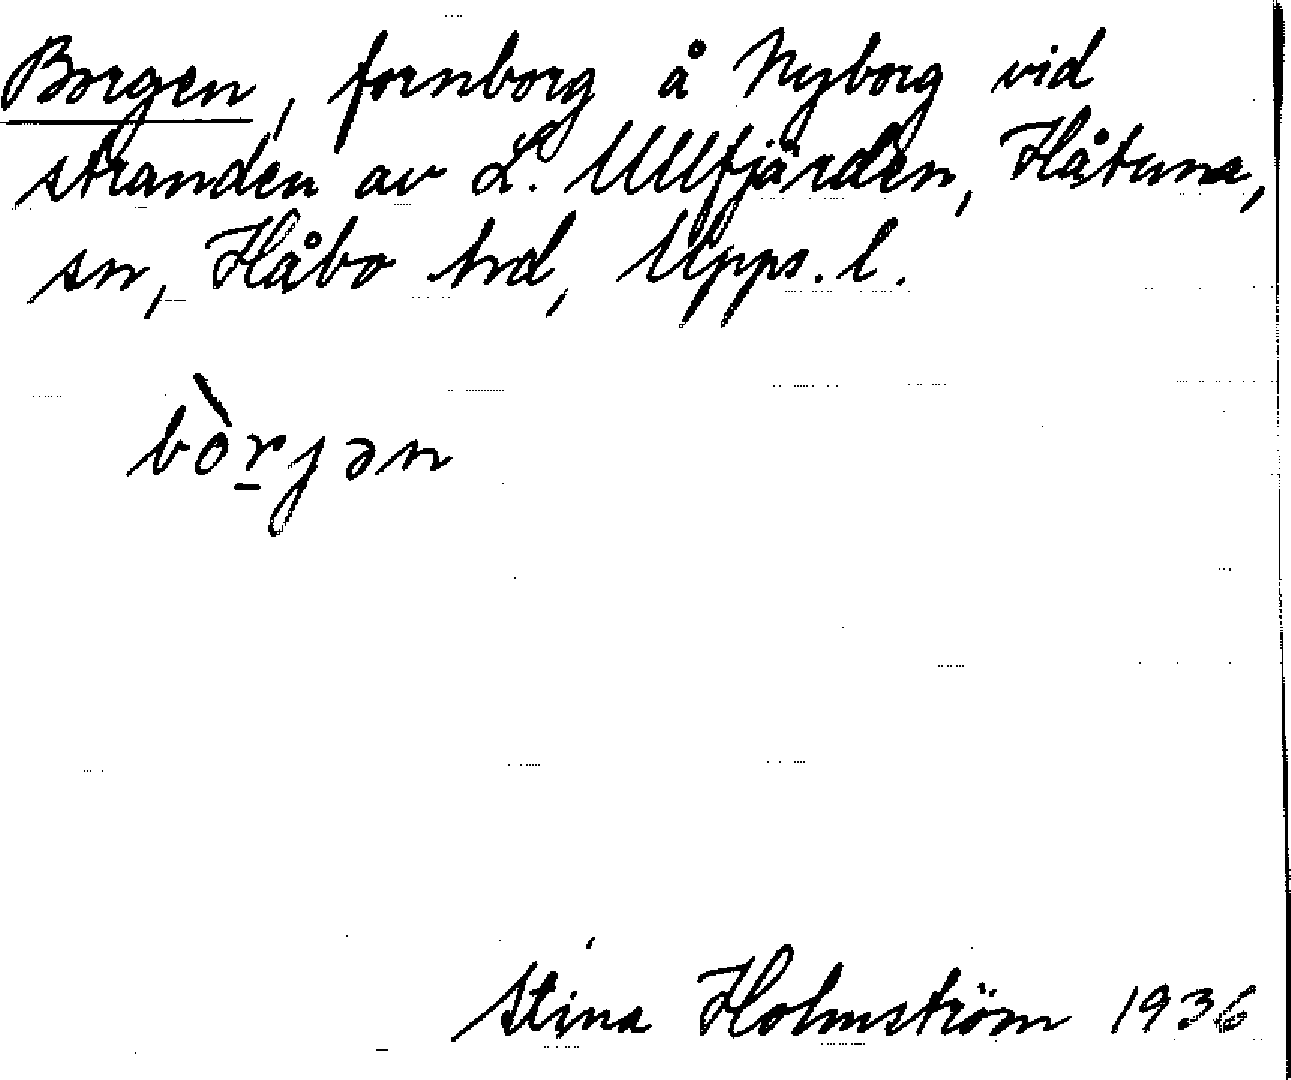 Borgen, fornborg å Nyborg vid
stranden av L. Ullfjärden, Håtuna,
sn, Håbo hd, Upps. l.
bòr̲jən
Stina Holmström 1936